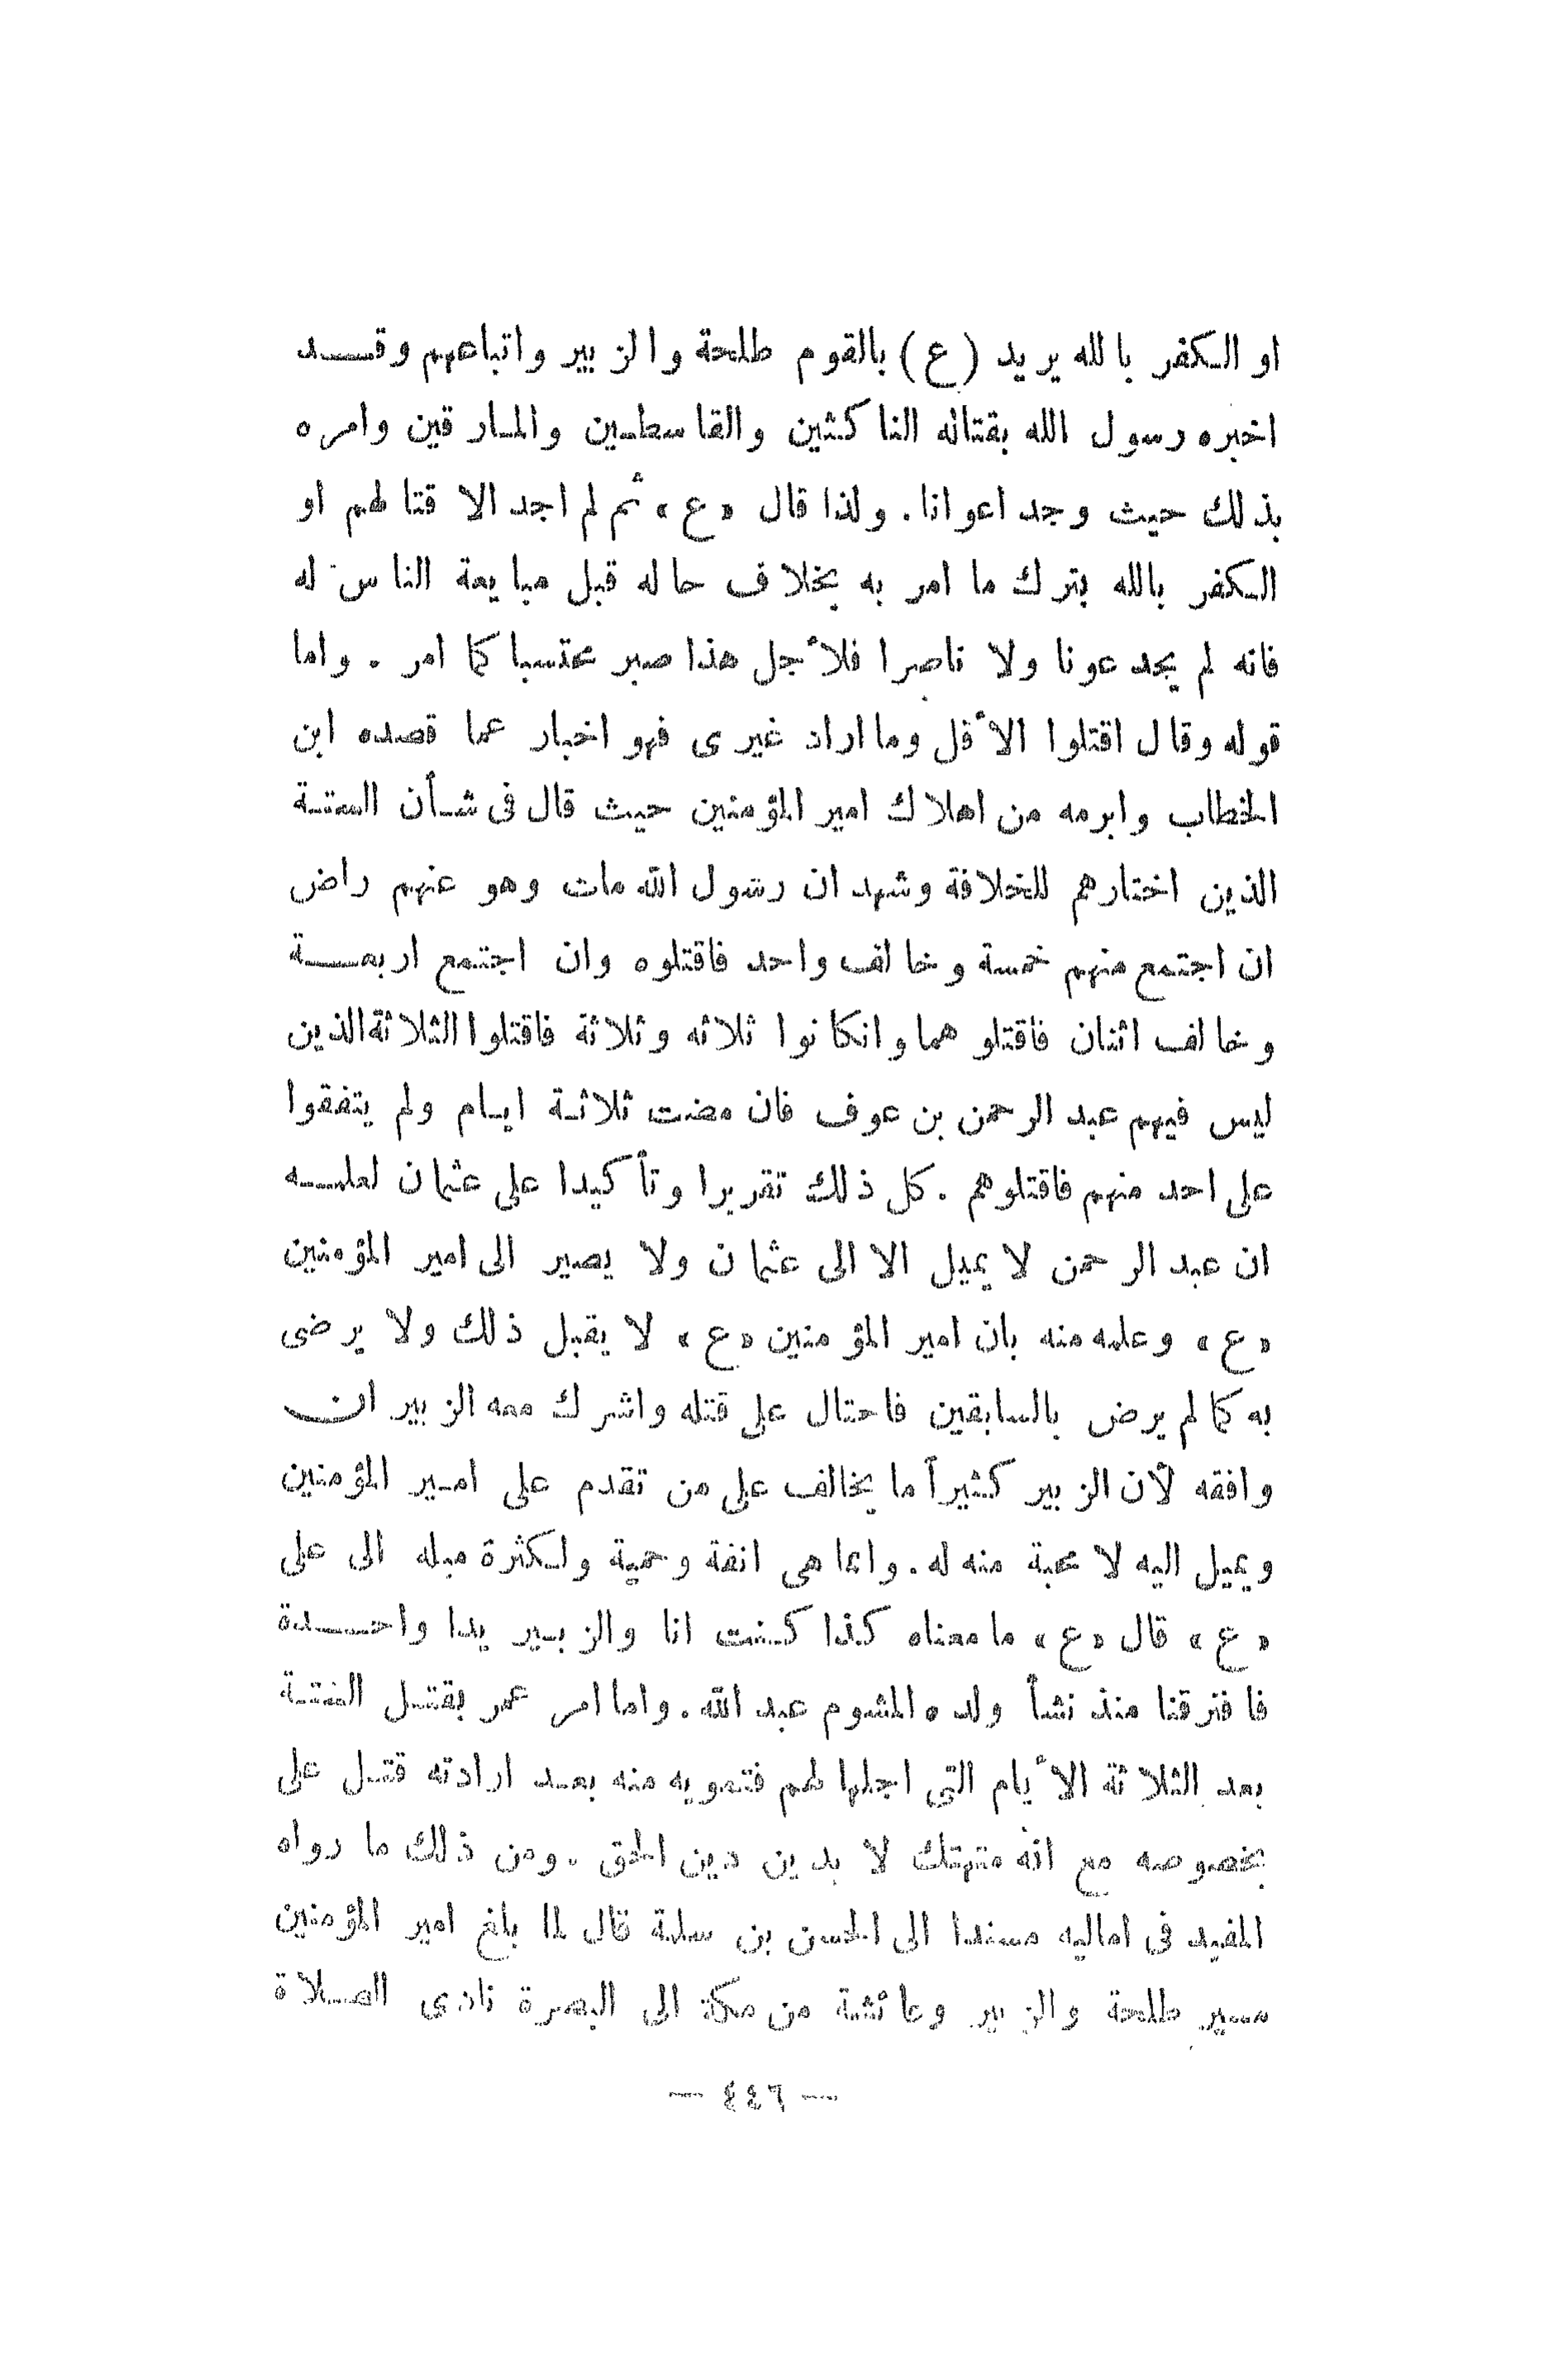 او الكفر بالله يريد (ع) بالقوم طلحة والزبير واتباعهم وقد
اخبره رسول الله بقتاله الناكثين والقاسطين والمارقين وامره
بذلك حيث وجد اعوانا . ولذا قال «ع» ثم لم اجد الا قتالهم او
الكفر بالله بترك ما امر به بخلاف حاله قبل مبايعة الناس له
فانه لم يجد عونا ولا ناصرا فلأجل هذا صبر محتسبا كما امر . واما
قوله وقال اقتلوا الأقل وما اراد غيرى فهو اخبار عما قصده ابن
الخطاب وابرمه من اهلاك امير المؤمنين حيث قال فى شأن الستة
الذين اختارهم للخلافة وشهد ان رسول الله مات وهو عنهم راض
ان اجتمع منهم خمسة وخالف واحد فاقتلوه وان اجتمع اربعة
وخالف اثنان فاقتلوهما وانكانوا ثلاثه وثلاثة فاقتلوا الثلاثة الذين
ليس فيهم عبد الرحمن بن عوف فان مضت ثلاثة ايام ولم يتفقوا
على احد منهم فاقتلوهم . كل ذلك تقريرا وتأكيدا على عثمان لعلمه
ان عبد الرحمن لا يميل الا الى عثمان ولا يصير الى امير المؤمنين
«ع» وعلمه منه بان امير المؤمنين «ع» لا يقبل ذلك ولا يرضى
به كما لم يرض بالسابقين فاحتال على قتله واشرك معه الزبير ان
وافقه لأن الزبير كثيراً ما يخالف على من تقدم على امير المؤمنين
ويميل اليه لا محبة منه له . وانما هى انفة وحمية ولكثرة ميله الى على
«ع» قال «ع» ما معناه كذا كنت انا والزبير يدا واحدة
فافترقنا منذ نشأ ولده المشوم عبد الله . واما امر عمر بقتل الفتة
بعد الثلاثة الأيام التى اجلها لهم فتمويه منه بعد ارادته قتل على
بخصوصه مع انه متهتك لا يدين دين الحق . ومن ذلك ما رواه
المفيد فى اماليه مسندا الى الحسن بن سلمة قال لما بلغ امير المؤمنين
مسير طلحة والزبير وعائشة من مكة الى البصرة نادى الصلاة
— ٤٤٦ —